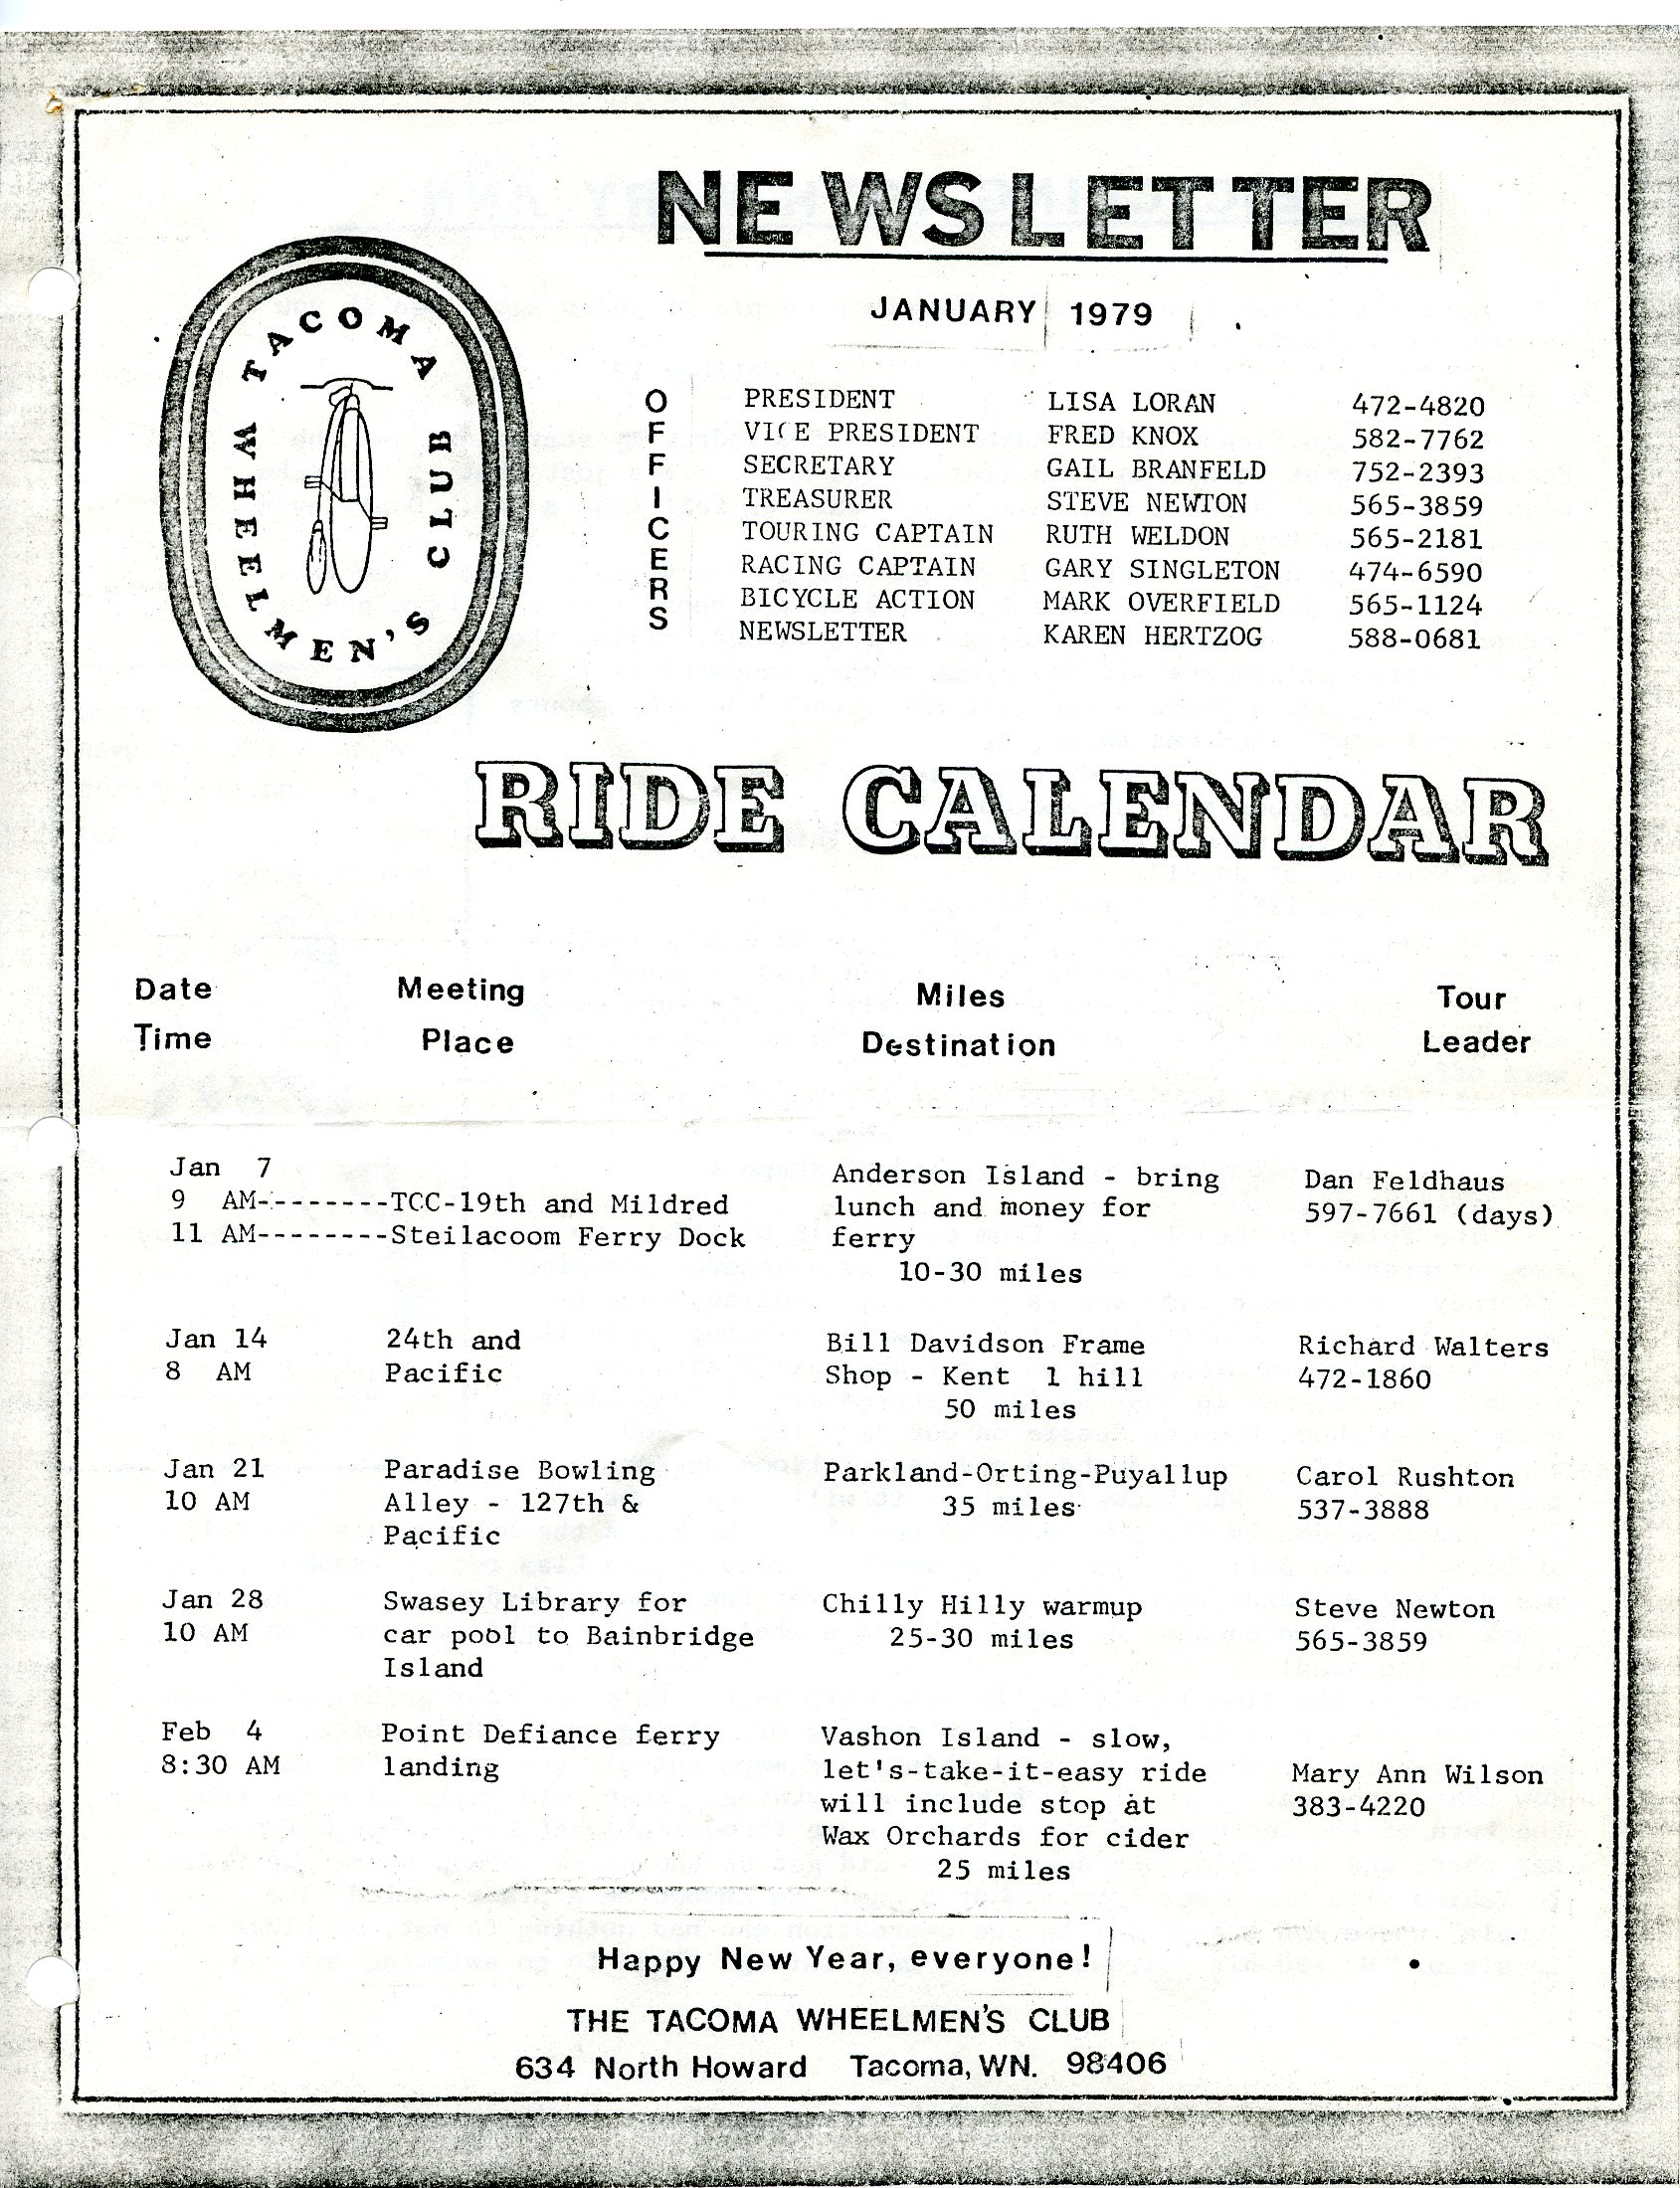 NEWSLETTER
JANUARY 1979
TACOMA WHEELMEN'S CLUB
OFFICERS
PRESIDENT LISA LORAN 472-4820
VICE PRESIDENT FRED KNOX 582-7762
SECRETARY GAIL BRANFELD 752-2393
TREASURER STEVE NEWTON 565-3859
TOURING CAPTAIN RUTH WELDON 565-2181
RACING CAPTAIN GARY SINGLETON 474-6590
BICYCLE ACTION MARK OVERFIELD 565-1124
NEWSLETTER KAREN HERTZOG 588-0681
RIDE CALENDAR
Date Meeting Miles Tour
Time Place Destination Leader
Jan 7 Anderson Island - bring Dan Feldhaus
9 AM--------TCC-19th and Mildred lunch and money for 597-7661 (days)
11 AM--------Steilacoom Ferry Dock ferry
10-30 miles
Jan 14 24th and Bill Davidson Frame Richard Walters
8 AM Pacific Shop - Kent 1 hill 472-1860
50 miles
Jan 21 Paradise Bowling Parkland-Orting-Puyallup Carol Rushton
10 AM Alley - 127th & 35 miles 537-3888
Pacific
Jan 28 Swasey Library for Chilly Hilly warmup Steve Newton
10 AM car pool to Bainbridge 25-30 miles 565-3859
Island
Feb 4 Point Defiance ferry Vashon Island - slow,
8:30 AM landing let's-take-it-easy ride Mary Ann Wilson
will include stop at 383-4220
Wax Orchards for cider
25 miles
Happy New Year, everyone!
THE TACOMA WHEELMEN'S CLUB
634 North Howard Tacoma, WN. 98406